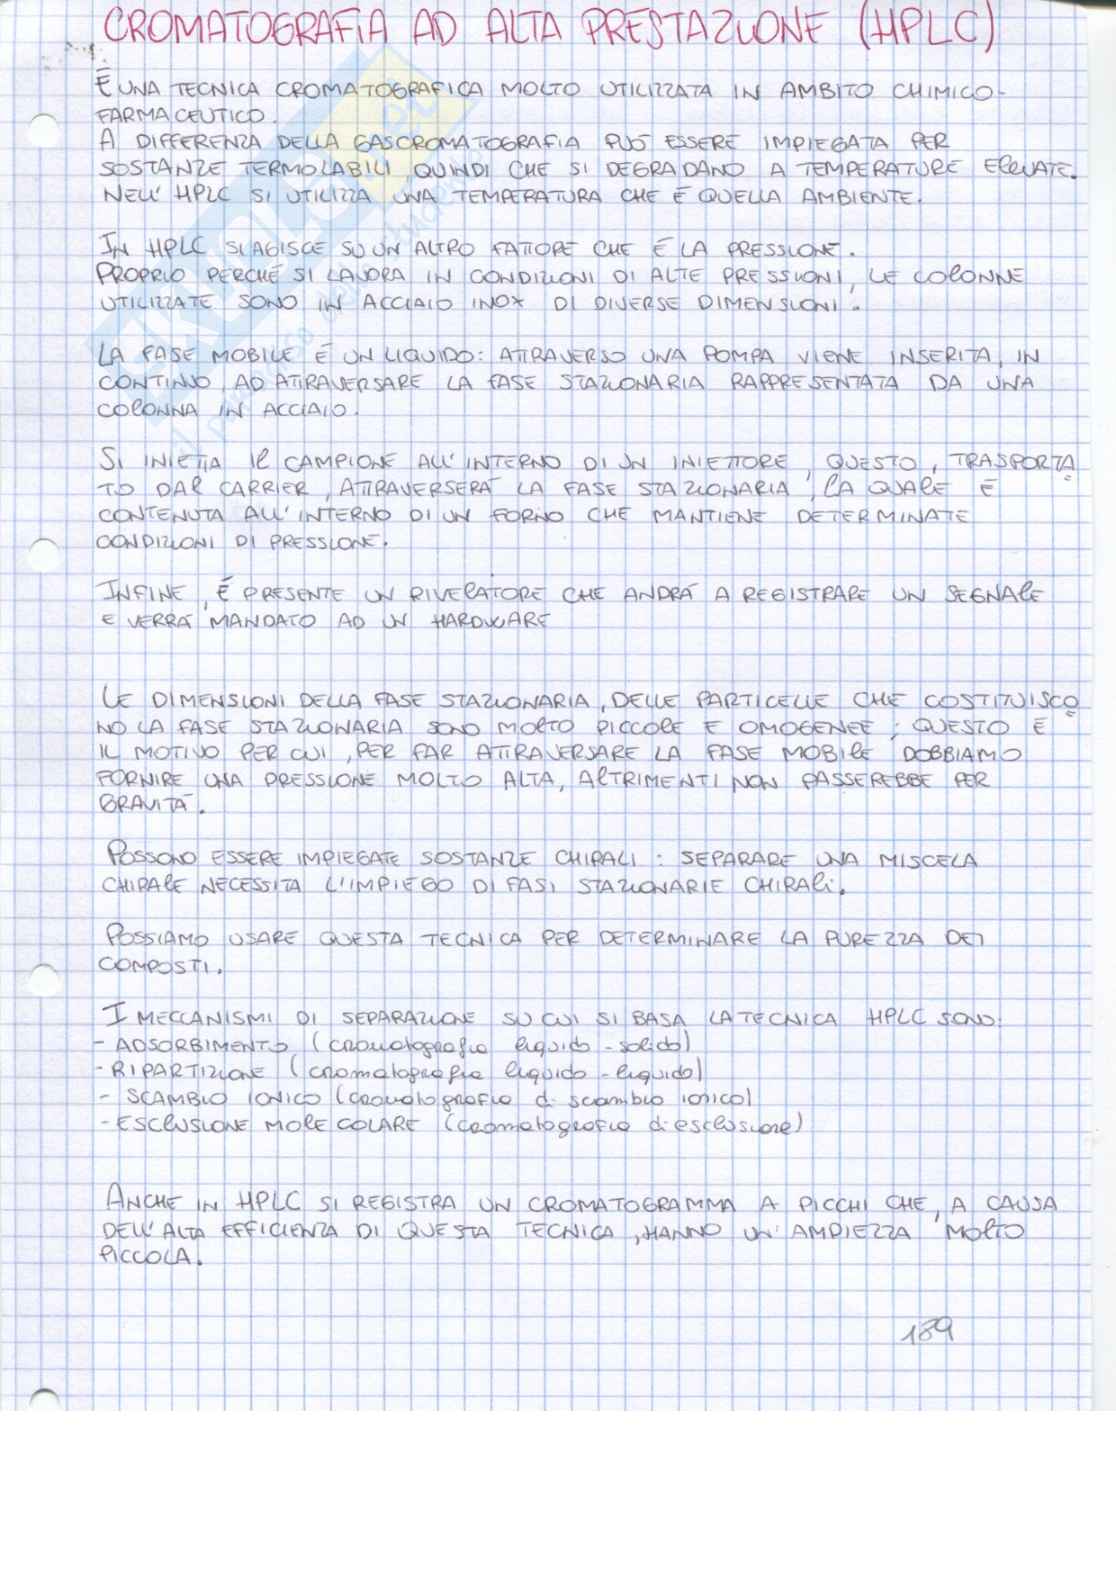 CROMATOGRAFIA AD ALTA PRESTAZIONE (HPLC)
È UNA TECNICA CROMATOGRAFICA MOLTO UTILIZZATA IN AMBITO CHIMICO-
FARMACEUTICO.
A DIFFERENZA DELLA GASCROMATOGRAFIA PUÒ ESSERE IMPIEGATA PER
SOSTANZE TERMOLABILI, QUINDI CHE SI DEGRADANO A TEMPERATURE ELEVATE.
NELL' HPLC SI UTILIZZA UNA TEMPERATURA CHE È QUELLA AMBIENTE.
IN HPLC SI AGISCE SU UN ALTRO FATTORE CHE È LA PRESSIONE.
PROPRIO PERCHÉ SI LAVORA IN CONDIZIONI DI ALTE PRESSIONI, LE COLONNE
UTILIZZATE SONO IN ACCIAIO INOX DI DIVERSE DIMENSIONI.
LA FASE MOBILE È UN LIQUIDO: ATTRAVERSO UNA POMPA VIENE INSERITA, IN
CONTINUO, AD ATTRAVERSARE LA FASE STAZIONARIA RAPPRESENTATA DA UNA
COLONNA IN ACCIAIO.
SI INIETTA IL CAMPIONE ALL'INTERNO DI UN INIETTORE, QUESTO, TRASPORTA
TO DAL CARRIER, ATTRAVERSERÀ LA FASE STAZIONARIA, LA QUALE È
CONTENUTA ALL'INTERNO DI UN FORNO CHE MANTIENE DETERMINATE
CONDIZIONI DI PRESSIONE.
INFINE, È PRESENTE UN RIVELATORE CHE ANDRÀ A REGISTRARE UN SEGNALE
E VERRÀ MANDATO AD UN HARDWARE
LE DIMENSIONI DELLA FASE STAZIONARIA, DELLE PARTICELLE CHE COSTITUISCO
NO LA FASE STAZIONARIA SONO MOLTO PICCOLE E OMOGENEE; QUESTO È
IL MOTIVO PER CUI, PER FAR ATTRAVERSARE LA FASE MOBILE DOBBIAMO
FORNIRE UNA PRESSIONE MOLTO ALTA, ALTRIMENTI NON PASSEREBBE PER
GRAVITÀ.
POSSONO ESSERE IMPIEGATE SOSTANZE CHIRALI: SEPARARE UNA MISCELA
CHIRALE NECESSITA L'IMPIEGO DI FASI STAZIONARIE CHIRALI.
POSSIAMO USARE QUESTA TECNICA PER DETERMINARE LA PUREZZA DEI
COMPOSTI.
I MECCANISMI DI SEPARAZIONE SU CUI SI BASA LA TECNICA HPLC SONO:
- ADSORBIMENTO (cromatografia liquido-solido)
- RIPARTIZIONE (cromatografia liquido-liquido)
- SCAMBIO IONICO (cromatografia di scambio ionico)
- ESCLUSIONE MOLECOLARE (cromatografia di esclusione)
ANCHE IN HPLC SI REGISTRA UN CROMATOGRAMMA A PICCHI CHE, A CAUSA
DELL'ALTA EFFICIENZA DI QUESTA TECNICA, HANNO UN'AMPIEZZA MOLTO
PICCOLA.
189